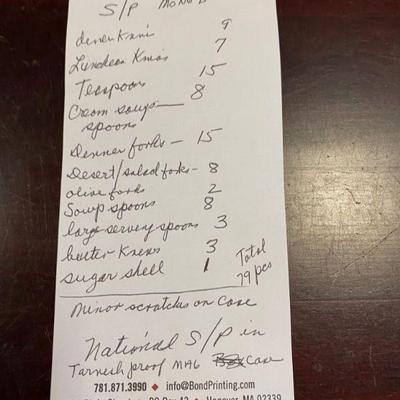 S/P Mono
dinner Knivs 9
Luncheon Knivs 7
Teaspoons 15
Cream soup 8
spoons
Dinner forks - 15
Desert/salad forks - 8
olive forks 2
Soup spoons 8
large serving spoons 3
butter Knives 3
sugar shell 1
Total
79 pcs
minor scratches on case
National S/P in
Tarnesh proof MAG case
781.871.3990 ♦ info@BondPrinting.com
PO Box 43 ♦ Hanover, MA 02339